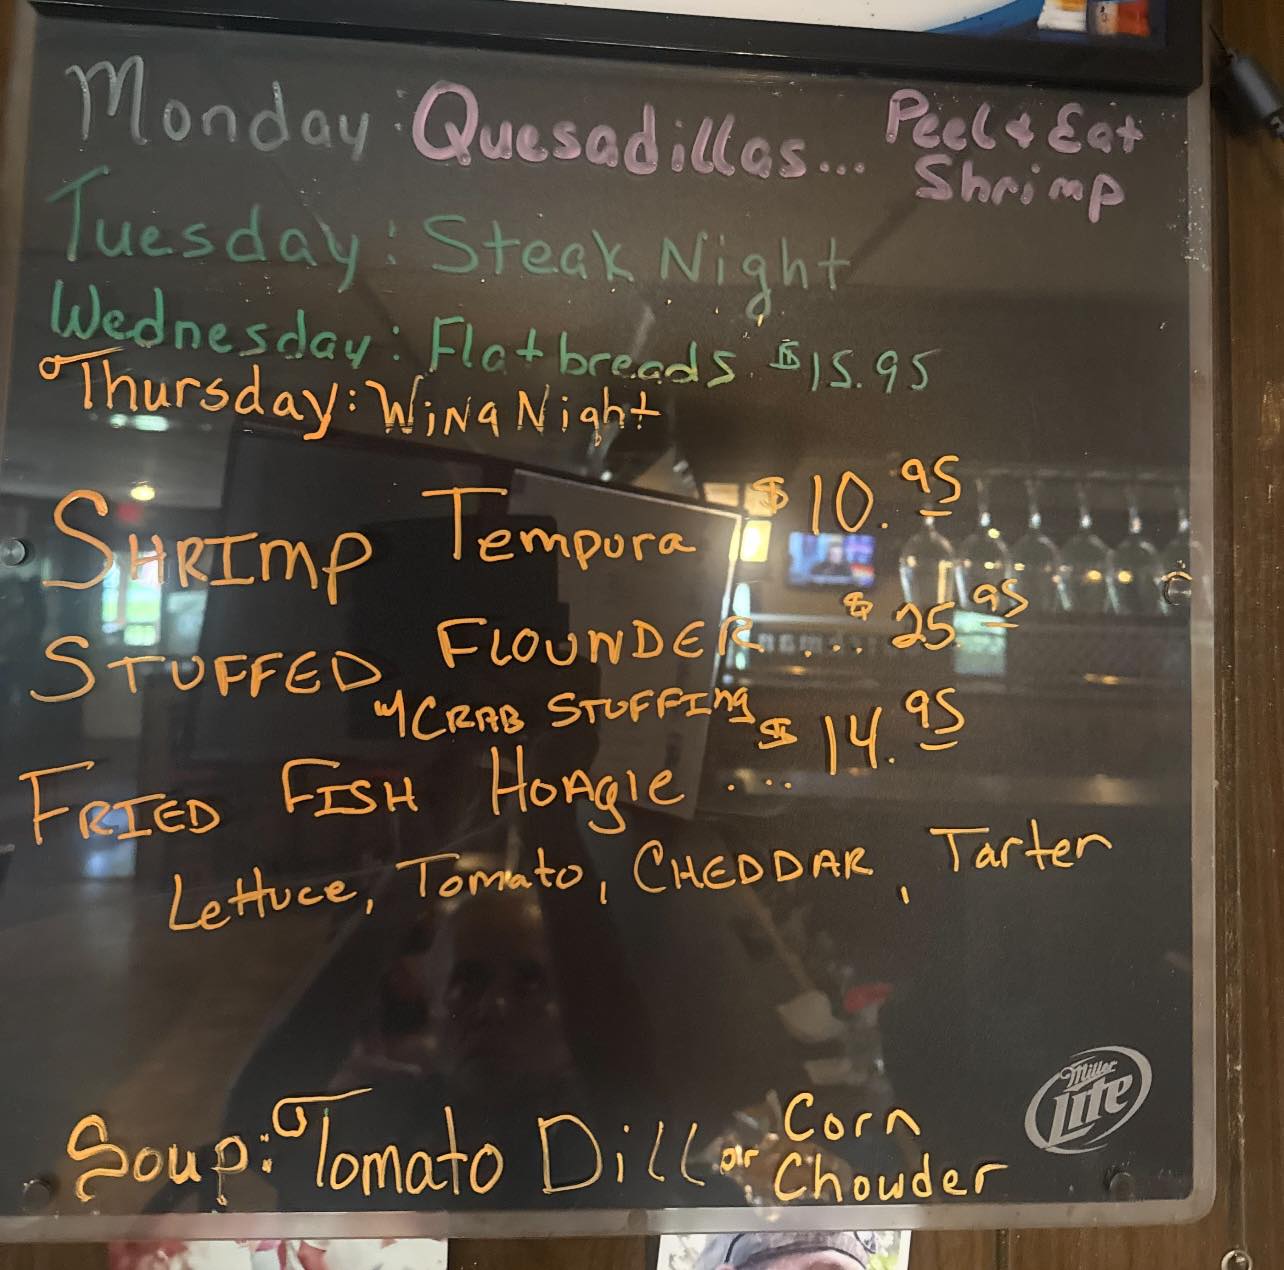 Monday: Quesadillas... Peel & Eat Shrimp
Tuesday: Steak Night
Wednesday: Flatbreads $15.95
Thursday: Wing Night
SHRIMP Tempura $10.95
STUFFED FLOUNDER... $25.95
w/ CRAB STUFFING
FRIED FISH HOAgie... $14.95
Lettuce, Tomato, CHEDDAR, Tarter
Soup: Tomato Dill or Corn Chowder
Miller Lite